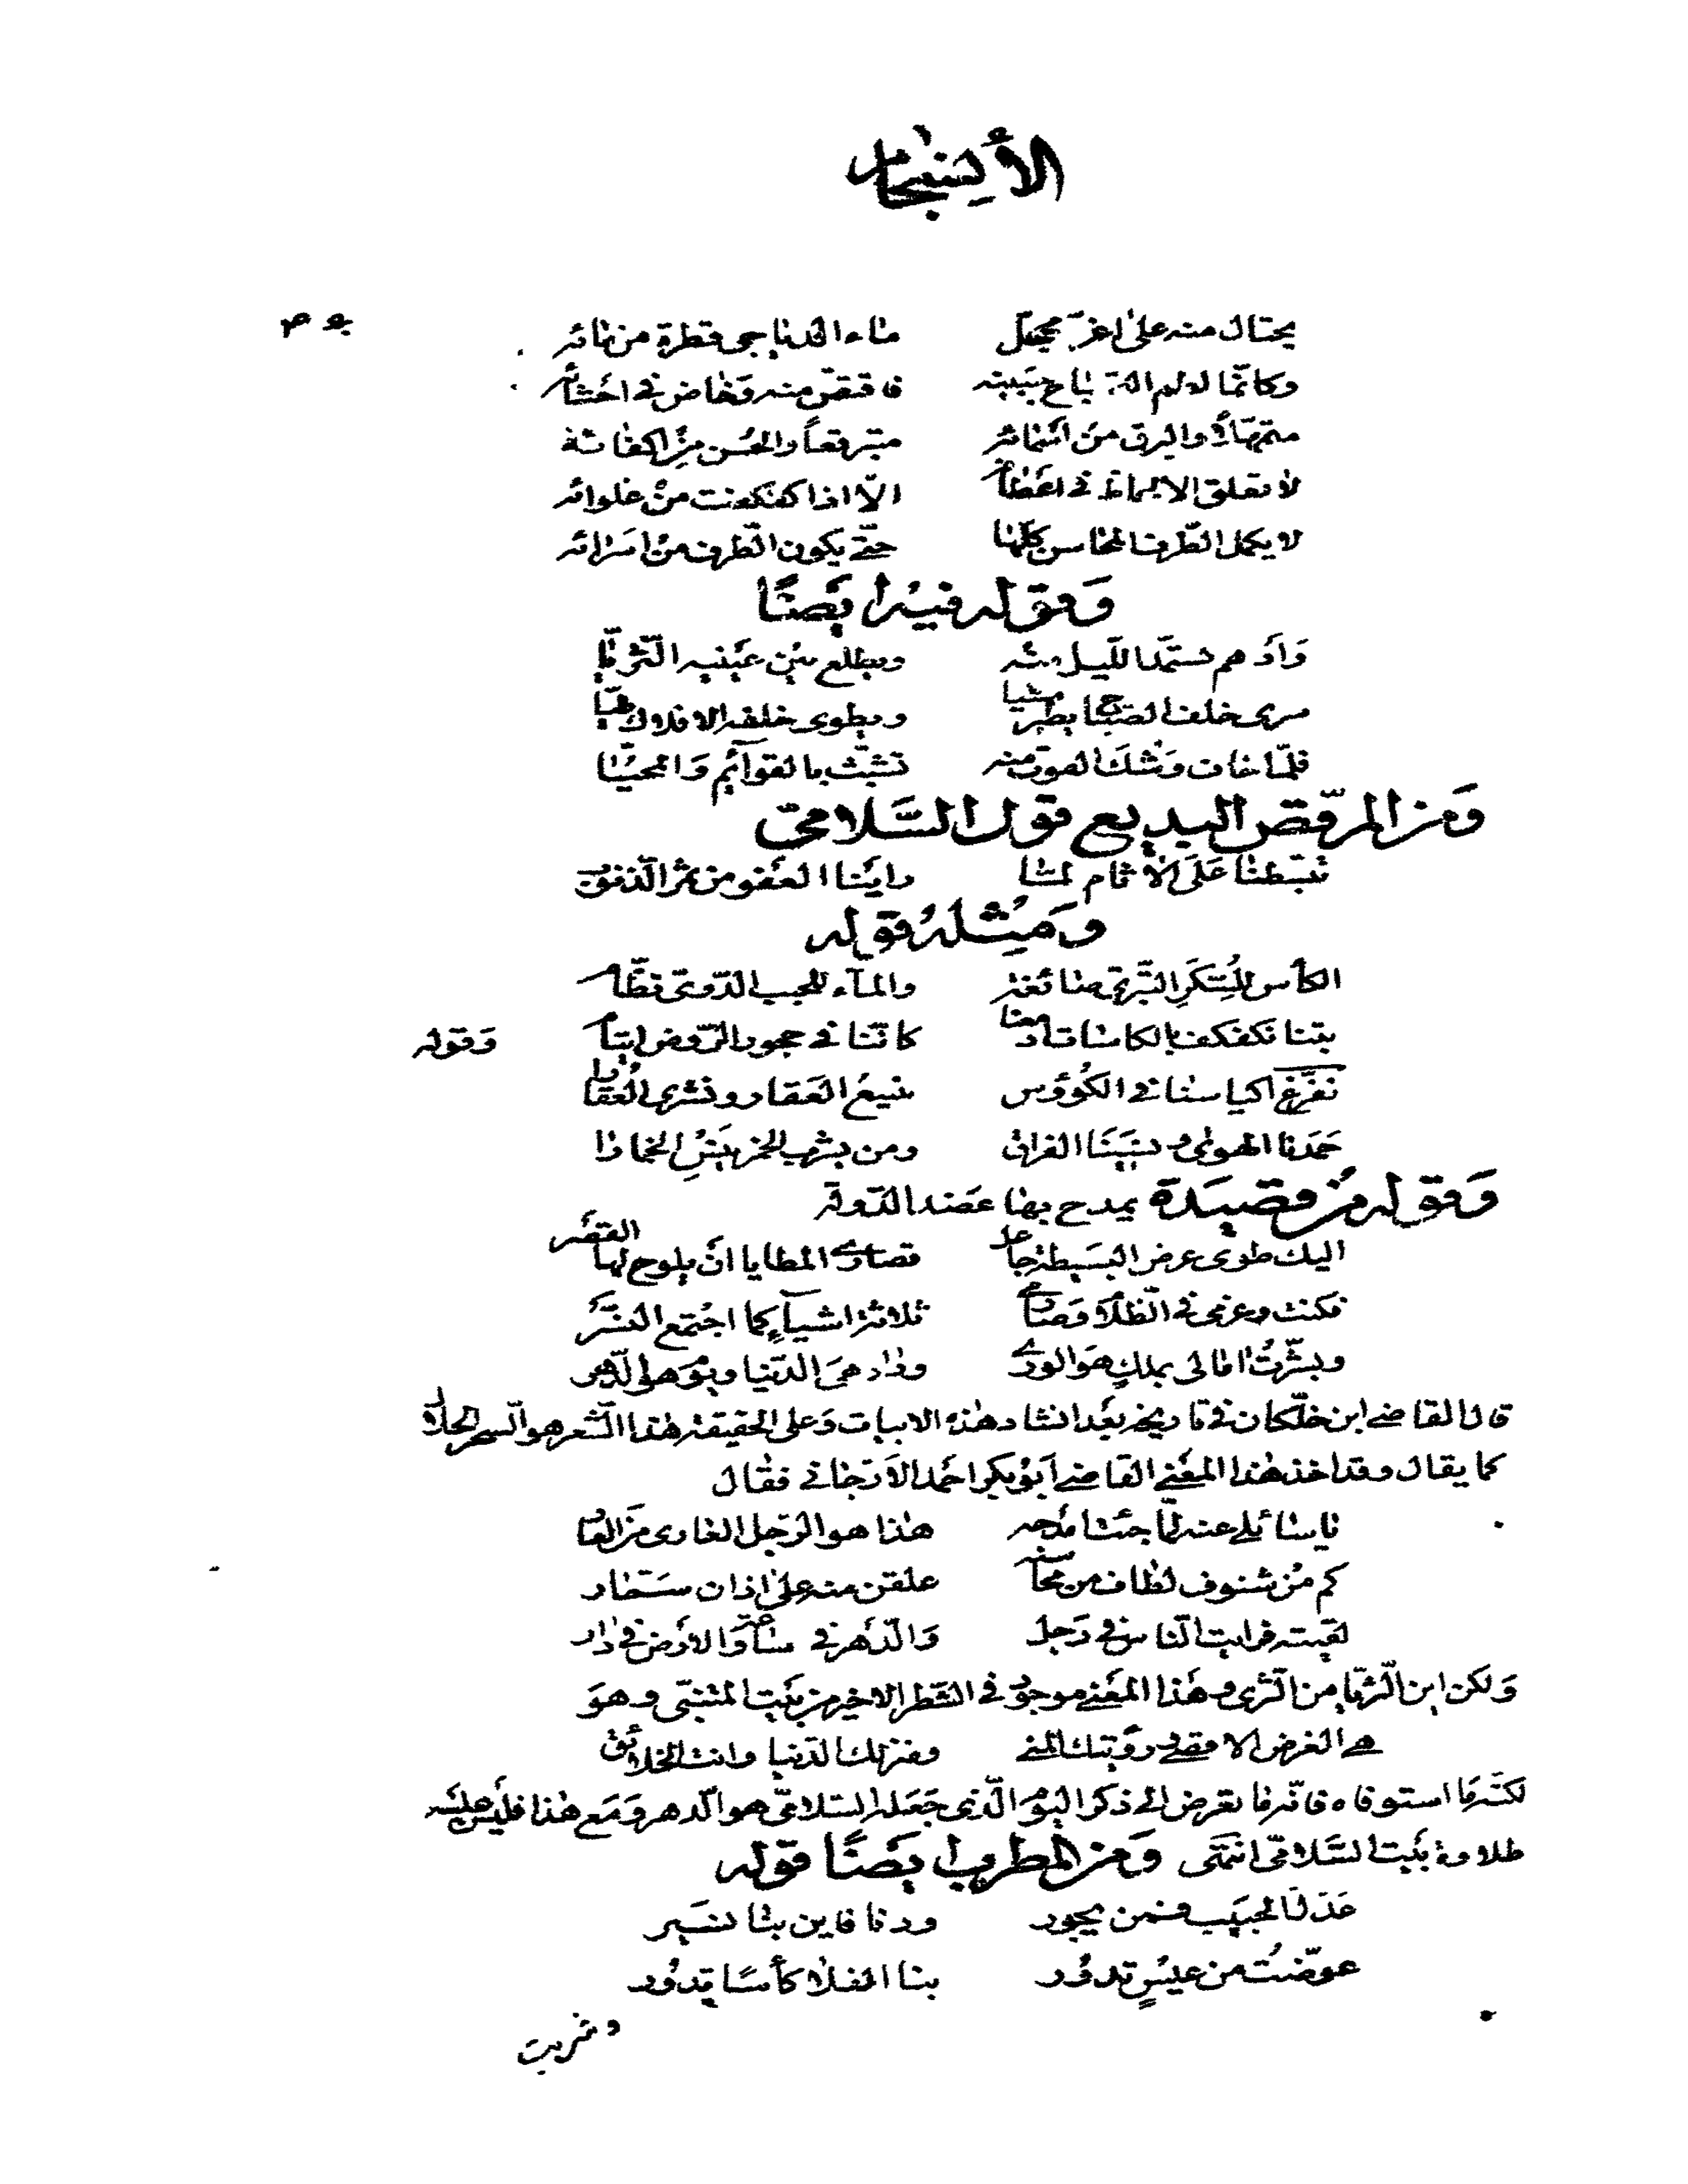 الأنسجام
يختال منه على اغرّ محجّل ماء الدياجى قطرة من مائه
وكأنّما لطم الصباح جبينه فاقتصّ منه وخاض فى احشائه
متمهّلاً والبرق من اسمائه متبرقعاً والحسن من اكفائه
لا تعلق الالحاظ فى اعطافه الّا اذا كفكفت من غلوائه
لا يكمل الطّرف المحاسن كلّها حتّى يكون الطّرف من اسرائه
وقوله فيه ايضًا
وأدهم يستمدّ اللّيل منه ويطلع بين عينيه الثّريّا
سرى خلف الصباح يطير مشيا ويطوى خلفه الافلاك طيّا
فلمّا خاف وشك الفوت منه تشبّث بالقوائم والمحيّا
ومن المرقص البديع قول السّلامىّ
تبسّطنا على الآثام لمّا رأينا العفو من ثمر الذّنوب
ومثله قوله
والماء للحبب الدّرّى نظّام
بتنا نكفكف بالكاسات ادمعنا كأنّنا فى حجور الرّوض ايتام وقوله
نفرّغ اكياسنا فى الكؤوس نبيع العقار ونشرى العقارا
حمدنا الهوى و الفراق ومن يشرب الخمر يخش الخمارا
وقوله من قصيدة يمدح بها عضد الدّولة
اليك طوى عرض البسيطة جاعل قصارى المطايا انّ يلوح لها القصر
فكنت وعزمى فى الظّلام وصارمى ثلاثة اشياء كما اجتمع النّسر
وبشّرت امالى بملك هو الورى ودار هى الدّنيا ويوم هو الدّهر
قال القاضى ابن خلّكان فى تاريخه بعد انشاد هذه الابيات وعلى الحقيقة هذا الشّعر هو السحر الحلال
كما يقال وقد اخذ هذا المعنى القاضى ابو بكر احمد الأرّجانى فقال
يا سائلى عنه لمّا جئت امدحه هذا هو الرّجل العارى من العار
كم من شنوف لطاف من محاسنه علقن منه على اذان سمّار
لقيته فرايت النّاس فى رجل والدّهر فى ساعة والأرض فى دار
ولكن اين الثّريّا من الثّرى وهذا المعنى موجود فى الشّطر الاخير من بيت المتنبّى وهو
هى الغرض الاقصى ورؤيتك المنى ومنزلك الدّنيا وانت الخلائق
لكنّه ما استوفاه فانّه ما تعرض الى ذكر اليوم الّذى جعله السّلامىّ هو الدّهر ومع هذا فليس عليه
طلاوة بيت السّلامىّ انتهى ومن المطرب ايضًا قوله
عذل الحبيب فمن يجور ودنا فاين بنا نسير
عوّضت من عيس تدور بنا الفلا كأسًا تدور
وشربت